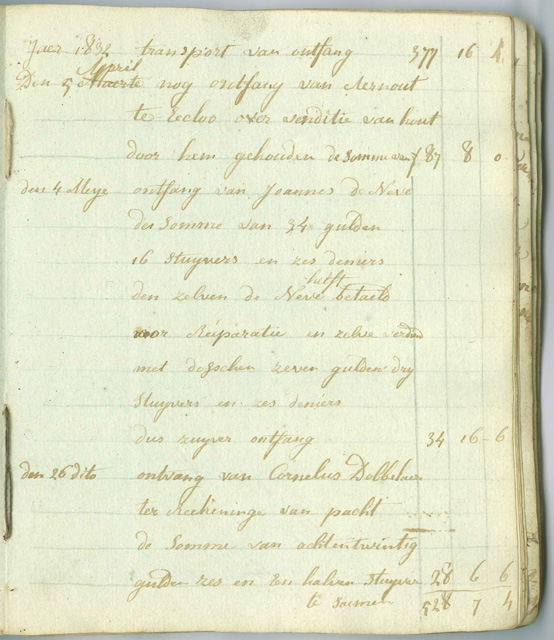 Jaer 1832 transport van ontfang 377 16 4
April
Den 5 Maerte nog ontfang van Aernout
te Eecloo over venditie van hout
door hem gehouden de Somme van f 87 8 0
den 4 Meye ontfang van Joannes de Neve
de Somme van 34 gulden
16 Stuyvers en zes deniers
heeft
den zelven de Neve betaeld
voor Reparatie en zelve
met dosschen zeven gulden dry
Stuyvers en zes deniers
dus zuyver ontfang 34 16 - 6
den 26 dito ontvang van Cornelius Dobbelaer
ter Rekeninge van pacht
de Somme van achtentwintig
gulden zes en Een halven Stuyver 28 6 6
te samen 528 7 4